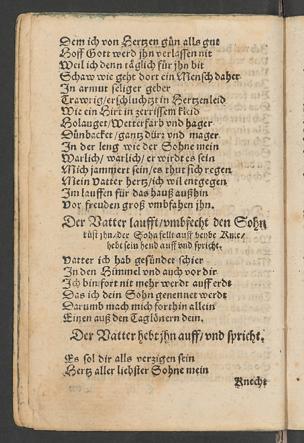 Dem ich von Hertzen gün alls gut
Hoff Gott werd jhn verlassen nit
Weil ich denn täglich für jhn bit
Schaw wie geht dort ein Mensch daher
In armut seliger geber
Trawrig/erschluchtzt in Hertzenleid
Wie ein Hirt in zerrissem kleid
Holauget/Wetterfarb vnd hager
Dünbacket/gantz dürr vnd mager
In der leng wie der Sohne mein
Warlich/warlich/er wirdt es sein
Mich jammert sein/es thut sich regen
Mein Vatter hertz/ich wil entgegen
Im lauffen für das hauß außhin
Vor freuden groß vmbfahen jhn.
Der Vatter laufft/vmbfecht den Sohn
küst jhn/der Sohn felt auff beyde Knie/
hebt sein hend auff vnd spricht.
Vatter ich hab gesündet schier
In den Himmel vnd auch vor dir
Ich bin fort nit mehr werdt auff erdt
Das ich dein Sohn genennet werdt
Darumb mach mich forthin allein
Einen auß den Taglönern dein.
Der Vatter hebt jhn auff/vnd spricht.
Es sol dir alls verzigen sein
Hertz aller liebster Sohne mein
Knecht